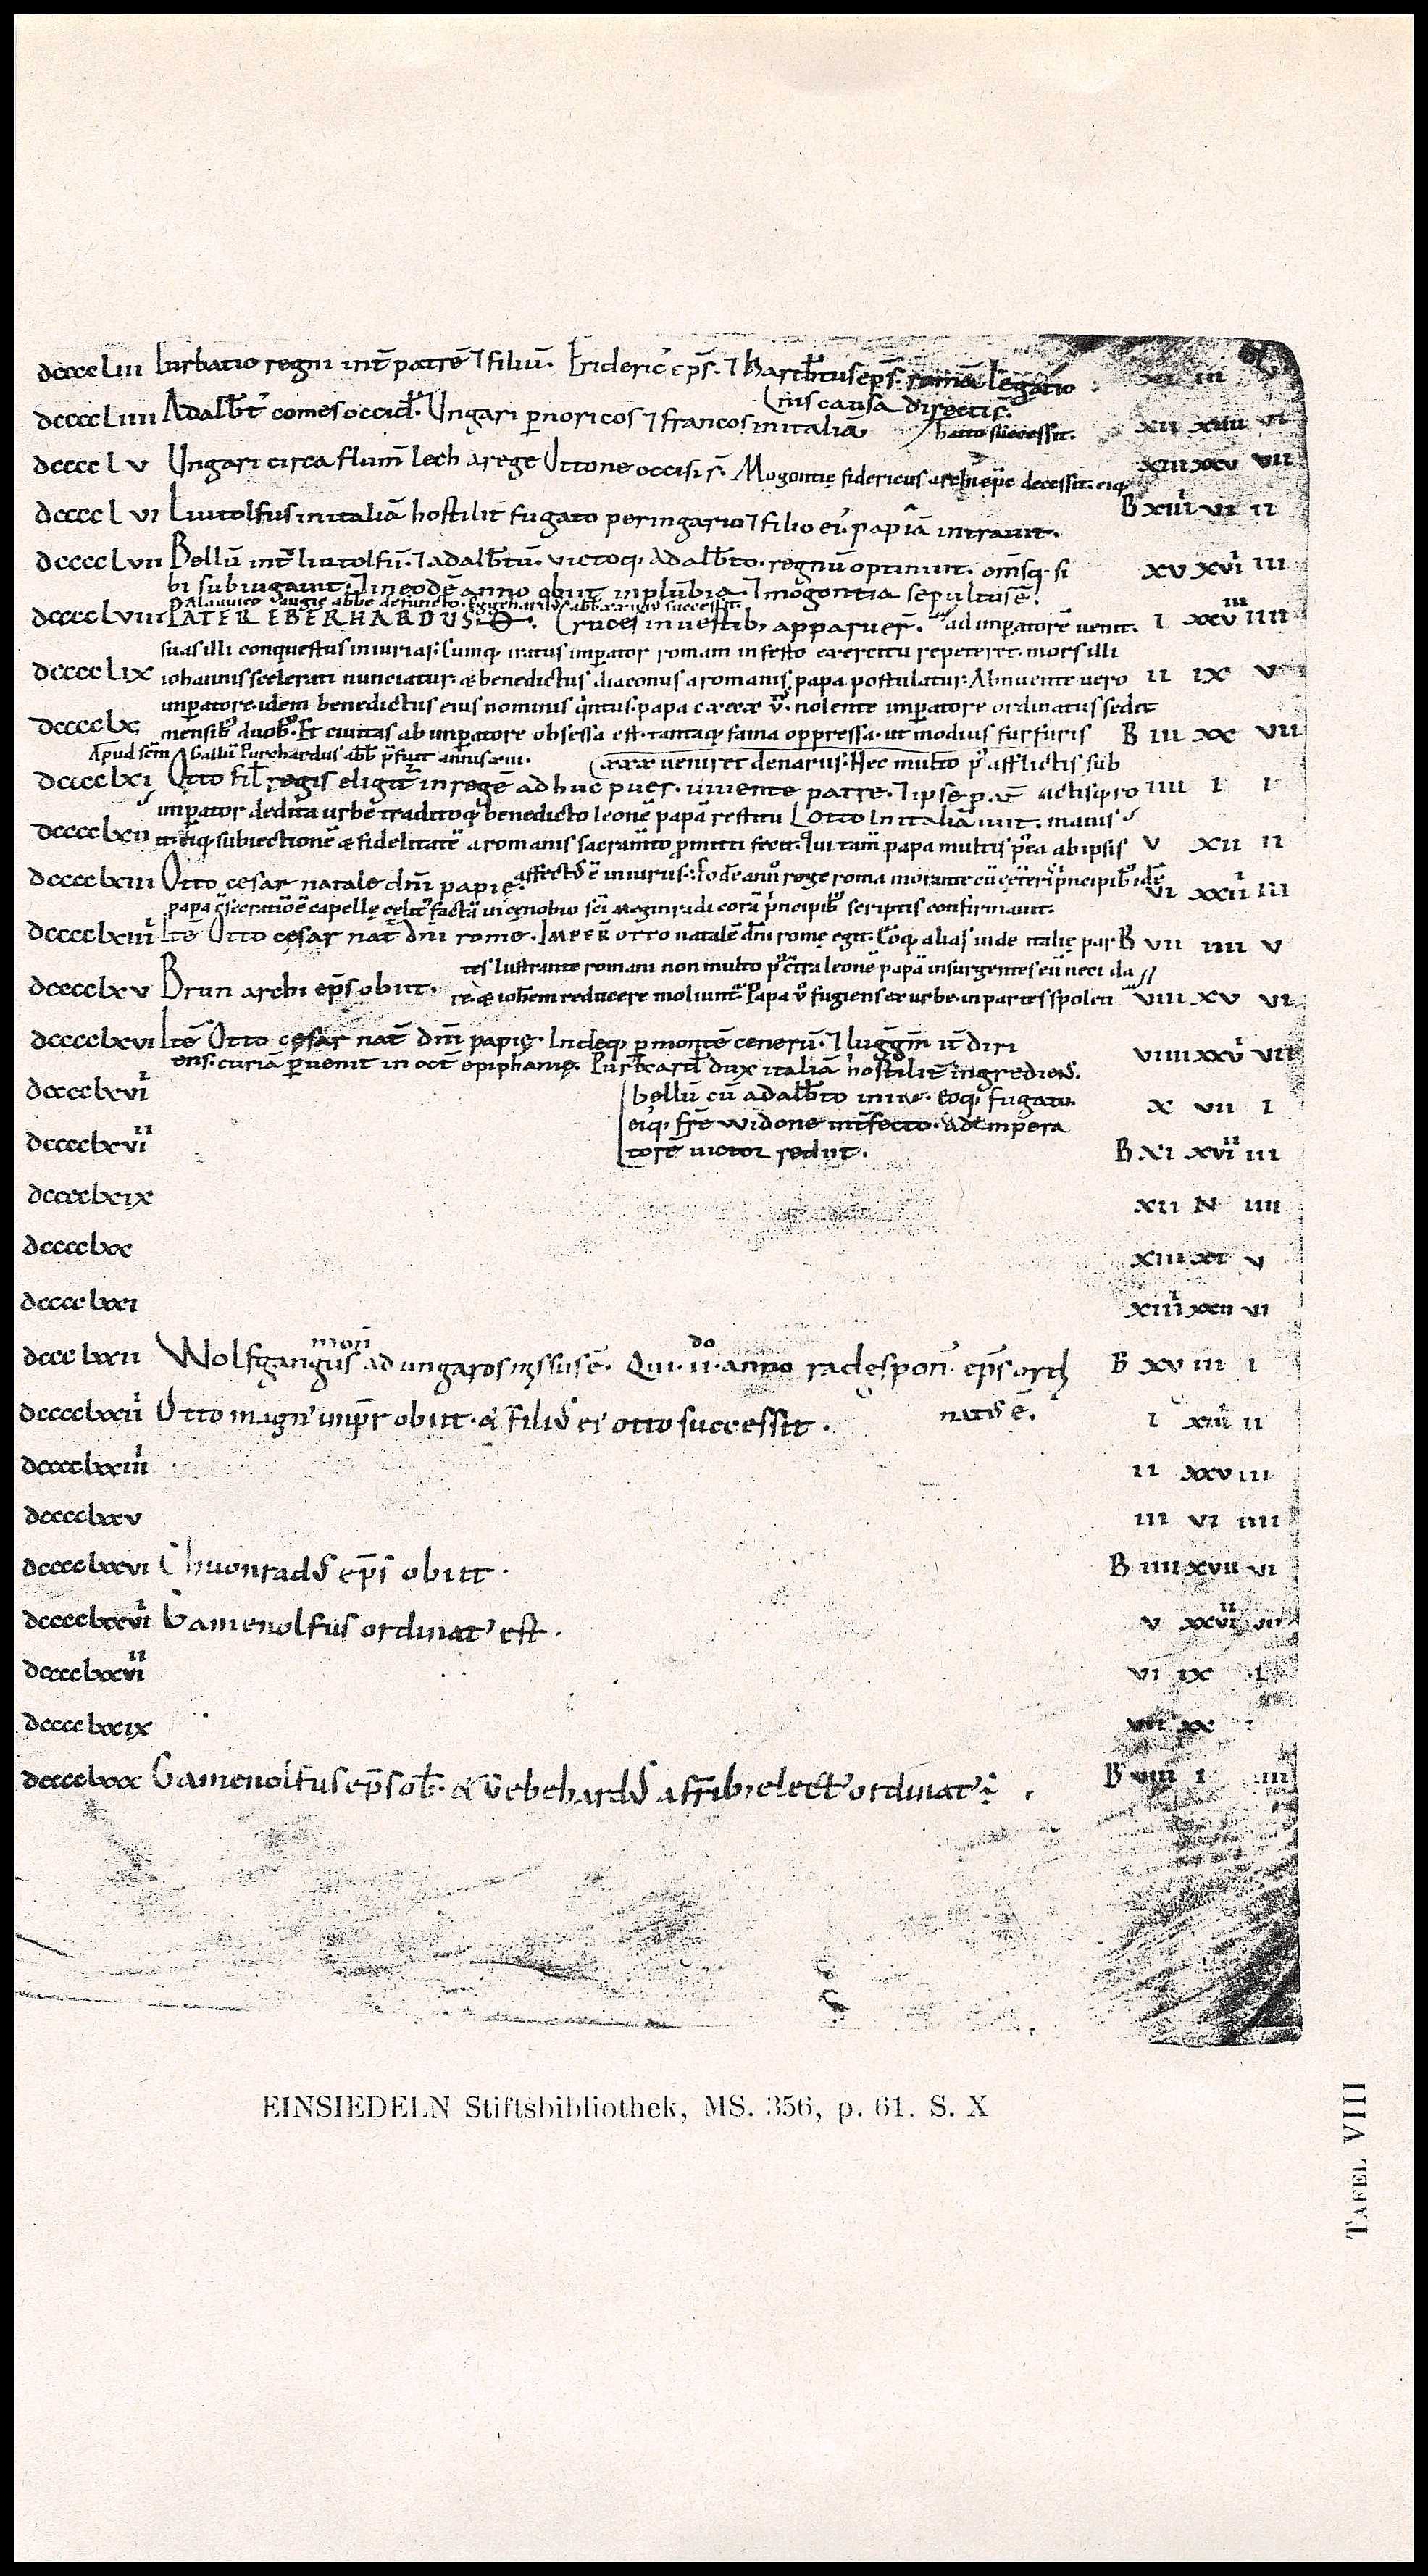 dccccLiii Turbatio regni int̄ patrē ⁊ filiū. Frideric' ep̄s. ⁊ Hartb̄tus ep̄s. romā legatio
nis causa directi s̄.
dccccLiiii Adalb̄t' comes occid̄. Ungari p noricos ⁊ francos in italiā hatto successit. xii xiiii vi
dcccc L v Ungari circa flum̄ lech a rege Ottone occisi s̄. Mogontię fidericus archiep̄c decessit. eiq; xiii xxv vii
dcccc L vi Liutolfus in italiā hostilit fugato peringario ⁊ filio ei'. papiā intravit. B xiiii vi ii
dcccc L vii Bellū int̄ liutolfū. ⁊ adalb̄tū. victoq; Adalb̄to. regnū optinuit. om̄sq; si xv xvii iii
bi subiugavit. ⁊ in eodē anno obiit in plūbia ⁊ mogontia sepultus ē.
Alauuico augie abbe defuncto. Eggehard' abb successit.
dccccLviii PATER EBERHARDUS. Cruces in vestib; apparuer̄. ad impatorē venit. i xxviii iiii
suas illi conquestus iniurias: Cumq; iratus impator romam infesto exercitu repeteret. mors illi
dcccc Lix iohannis scelerati nunciatur. & benedictus diaconus a romanis papa postulatur: Abnuente vero ii ix v
impatore. idem benedictus eius nominis q̇ntus. papa contra v̄. nolente impatore ordinatus sedit
dcccc lx mensib' duob'. Et civitas ab impatore obsessa est. tantaq; fama oppressa. ut modius furfuris B iii xx vii
Apud sc̄m Gallū Purchardus abb̄ p̄fuit annis xiii. veniret denarius: Hec multo p' afflictis sub
dcccc lxi Otto fil̄ regis eligit̄ in regē adhuc puer. vivente patre. ⁊ ipse actisq; ro iiii i i
impator dedita urbe traditoq; benedicto leonē papā restitu Otto In italiā iuit. manis
dcccclxii it. eiq; subiectionē & fidelitatē a romanis sacram̄to p̄mitti fecit. Qui tam̄ papa multis p'ea ab ipsis v xii ii
dcccclxiii Otto cesar natale dn̄i papię. affect' ē iniuriis: Eodē anno rege roma morante cū ceteri' p'ncipib' idē vi xxiii iii
papa c̄secrationē capellę celit' factā in cenobio sc̄i meginradi corā p'ncipib' scriptis confirmavit.
dcccclxiiii Itē Otto cęsar nat̄ dn̄i romę. IMPER OTTO natalē dn̄i romę egit. Eoq; alias inde italię par B vii iiii v
tes lustrante romani non multo p' c̄tra leonē papā insurgentes eū neci da
dcccc lx v Brun archi ep̄s obiit. re. & ioh̄em reducere moliunt̄. Papa v̄ fugiens ex urbe. in partes spoleti viii xv vi
dcccclxvi Itē Otto cęsar nat̄ dn̄i papię. Indeq; p montē cenerū. ⁊ luggn̄m it̄ diri viiii xxvi vii
ens. curiā pvenit in oct̄ epiphanię. Purkhard' dux italiā hostilit̄ ingrediens.
dcccclxvii bellū cū adalb̄to iniit. eoq; fugato. x vii i
eiq; fr̄e widone int̄fecto. ad impera
dcccclxviii torē victor rediit. B xi xviii iii
dcccclxix xii N iiii
dcccclxx xiii xi v
dcccclxxi xiiii xxii vi
mon̄ do
dccclxxii Wolfgangus ad ungaros missus ē. Qui. ii. anno radespon̄. ep̄s ord B xv iii i
dcccclxxiii Otto magn' imp̄r obiit. & fili' ei' otto successit. nat' ē. i xiiii ii
dcccclxxiiii ii xxv iii
dcccclxxv iii vi iiii
dcccclxxvi Chuonrad' ep̄s obiit. B iiii xvii vi
dcccclxxvii Gamenolfus ordinat' est. v xxviii
dcccclxxviii vi ix i
dcccclxxix vii xx
dcccclxxx Gamenolfus ep̄s ob̄. & v̄ ebehard' a fr̄ib; elect' ordinat' B viiii i iii
EINSIEDELN Stiftsbibliothek, MS. 356, p. 61. S. X
TAFEL VIII